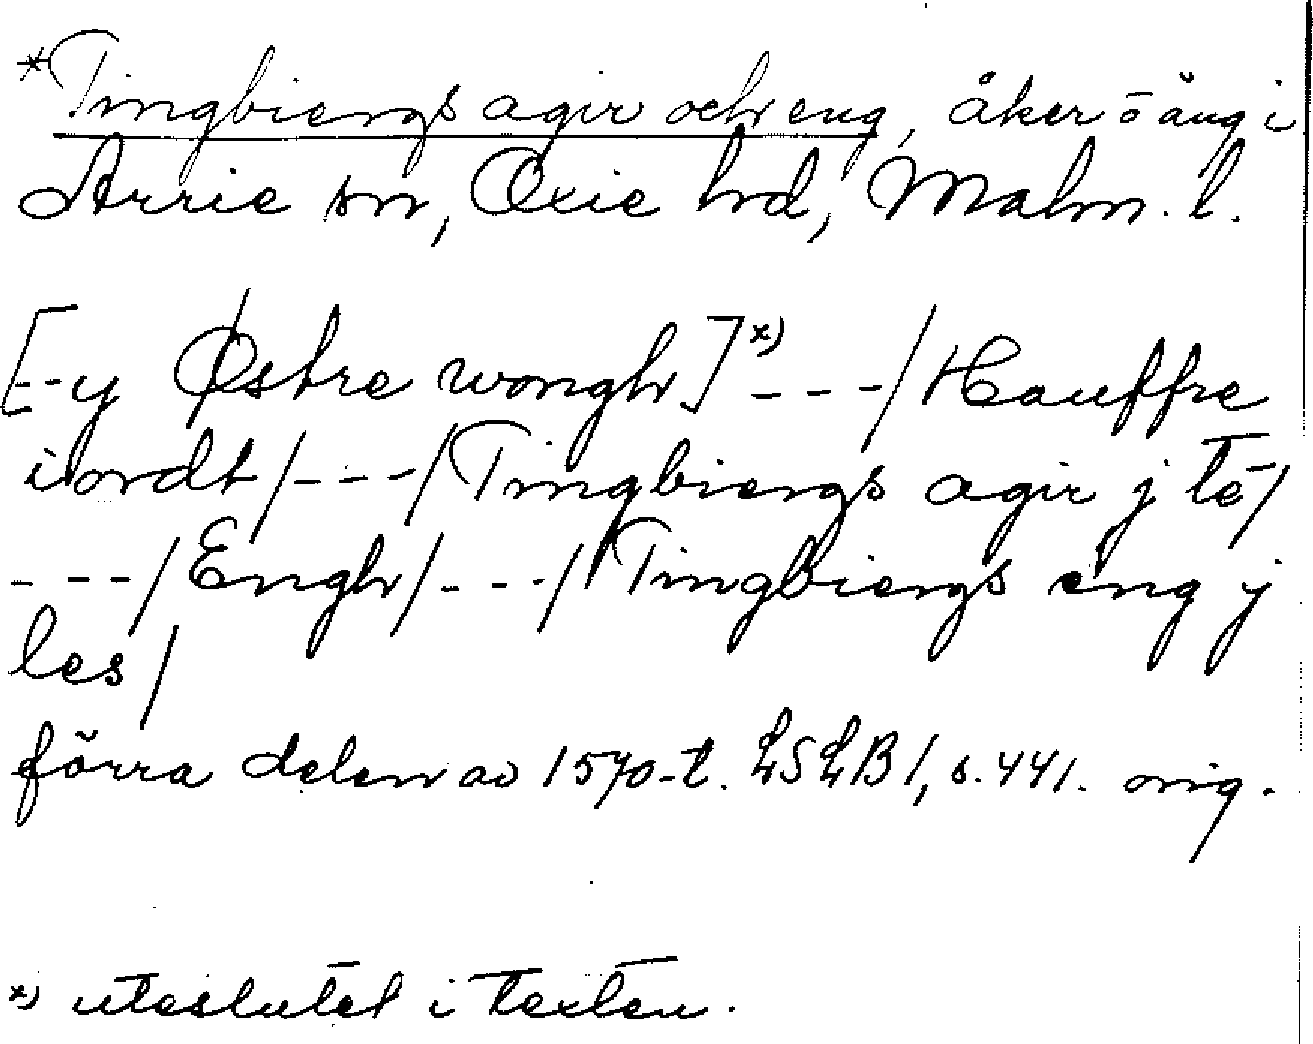 *Tingbiergs agir och eng, åker o äng i
Arrie sn, Oxie hd, Malm. l.
[--y Østre wongh]*) ---/Hauffre
iordt/---/Tingbiergs agir j te/
----/Engh/---/Tingbiergs eng j
les/
förra delen av 1570-t. LSLB 1, s. 441. orig.
*) uteslutet i texten.